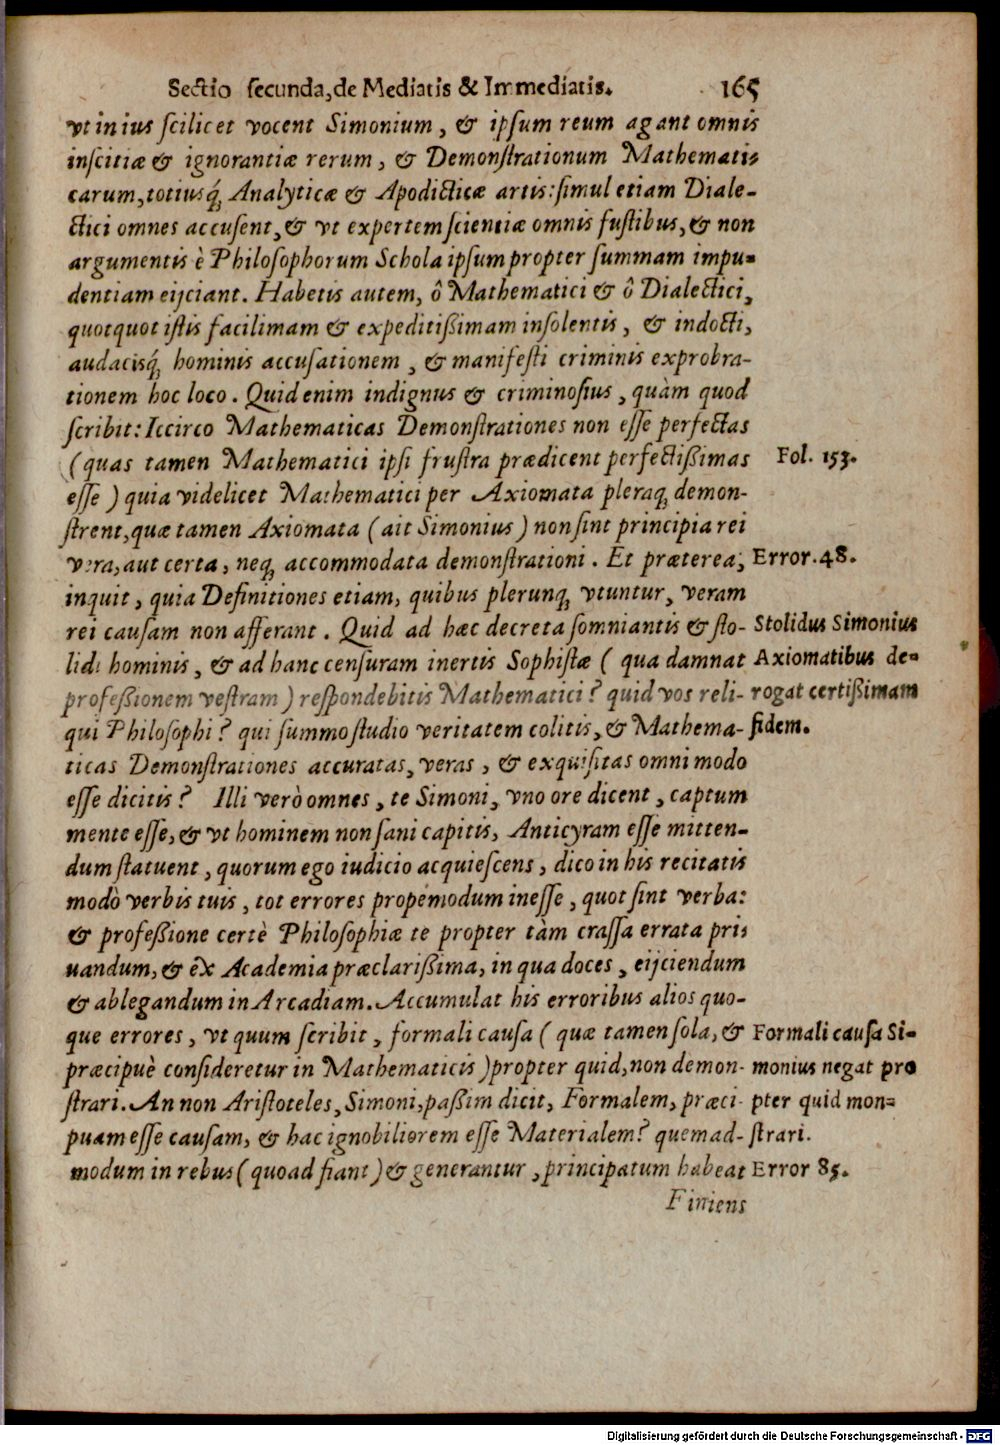 Sectio secunda, de Mediatis & Immediatis. 165
vt in ius scilicet vocent Simonium, & ipsum reum agant omnis
inscitiæ & ignorantiæ rerum, & Demonstrationum Mathemati-
carum, totiusq́; Analyticæ & Apodicticæ artis: simul etiam Diale-
ctici omnes accusent, & vt expertem scientiæ omnis fustibus, & non
argumentis è Philosophorum Schola ipsum propter summam impu-
dentiam eijciant. Habetis autem, ô Mathematici & ô Dialectici,
quotquot istis facilimam & expeditißimam insolentis, & indocti,
audacisq́; hominis accusationem, & manifesti criminis exprobra-
tionem hoc loco. Quid enim indignus & criminosius, quàm quod
scribit: Iccirco Mathematicas Demonstrationes non esse perfectas
(quas tamen Mathematici ipsi frustra prædicent perfectißimas
Fol. 153.
esse) quia videlicet Mathematici per Axiomata pleraq; demon-
strent, quæ tamen Axiomata (ait Simonius) non sint principia rei
vera, aut certa, neq; accommodata demonstrationi. Et præterea,
Error. 48.
inquit, quia Definitiones etiam, quibus plerunq; vtuntur, veram
rei causam non afferant. Quid ad hæc decreta somniantis & sto-
lidi hominis, & ad hanc censuram inertis Sophistæ (qua damnat
professionem vestram) respondebitis Mathematici? quid vos reli-
qui Philosophi? qui summo studio veritatem colitis, & Mathema-
Stolidus Simonius
Axiomatibus de-
rogat certißimam
fidem.
ticas Demonstrationes accuratas, veras, & exquisitas omni modo
esse dicitis? Illi verò omnes, te Simoni, vno ore dicent, captum
mente esse, & vt hominem non sani capitis, Anticyram esse mitten-
dum statuent, quorum ego iudicio acquiescens, dico in his recitatis
modò verbis tuis, tot errores propemodum inesse, quot sint verba:
& profeßione certè Philosophiæ te propter tàm crassa errata pri-
uandum, & ex Academia præclarißima, in qua doces, eijciendum
& ablegandum in Arcadiam. Accumulat his erroribus alios quo-
que errores, vt quum scribit, formali causa (quæ tamen sola, &
præcipuè consideretur in Mathematicis) propter quid, non demon-
strari. An non Aristoteles, Simoni, paßim dicit, Formalem, præci-
puam esse causam, & hac ignobiliorem esse Materialem? quemad-
modum in rebus (quoad fiant) & generantur, principatum habeat
Formali causa Si-
monius negat pro
pter quid mon-
strari.
Error 85.
Finiens
Digitalisierung gefördert durch die Deutsche Forschungsgemeinschaft - DFG